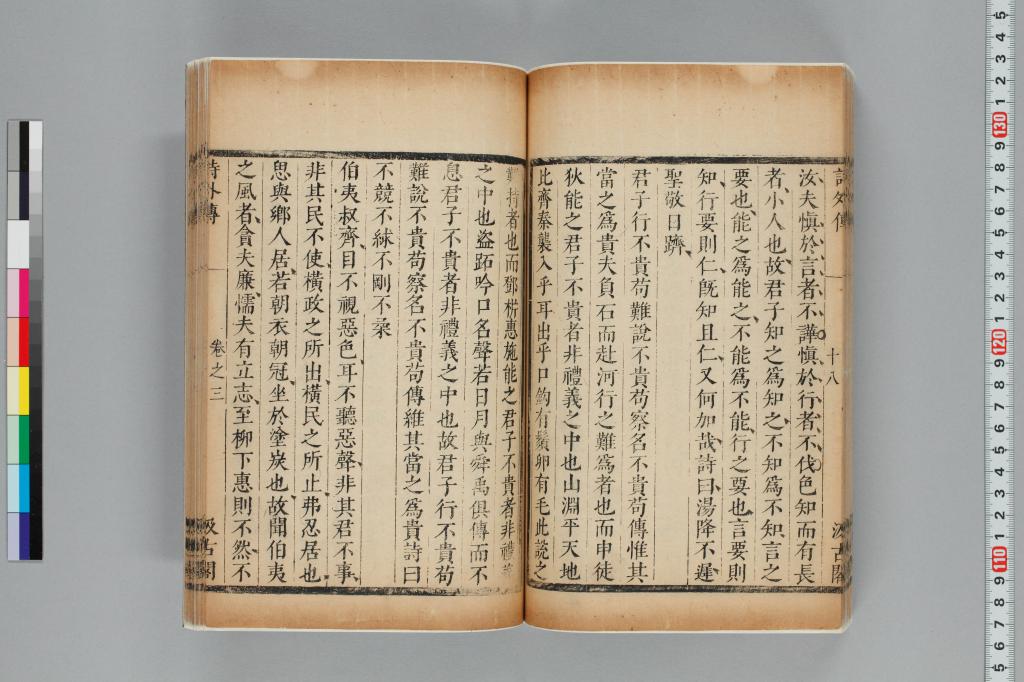 詩外傳
十八
汲古閣
汝夫愼於言者不譁愼於行者不伐色知而有長
者小人也故君子知之爲知之不知爲不知言之
要也能之爲能之不能爲不能行之要也言要則
知行要則仁旣知且仁又何加哉詩曰湯降不遲
聖敬日躋
君子行不貴苟難說不貴苟察名不貴苟傳惟其
當之爲貴夫負石而赴河行之難爲者也而申徒
狄能之君子不貴者非禮義之中也山淵平天地
比齊秦襲入乎耳出乎口鉤有鬚卵有毛此說之
難持者也而鄧析惠施能之君子不貴者非禮義
之中也盜跖吟口名聲若日月與舜禹俱傳而不
息君子不貴者非禮義之中也故君子行不貴苟
難說不貴苟察名不貴苟傳維其當之爲貴詩曰
不競不絿不剛不柔
伯夷叔齊目不視惡色耳不聽惡聲非其君不事
非其民不使橫政之所出橫民之所止弗忍居也
思與鄉人居若朝衣朝冠坐於塗炭也故聞伯夷
之風者貪夫廉懦夫有立志至柳下惠則不然不
詩外傳
卷之三
汲古閣